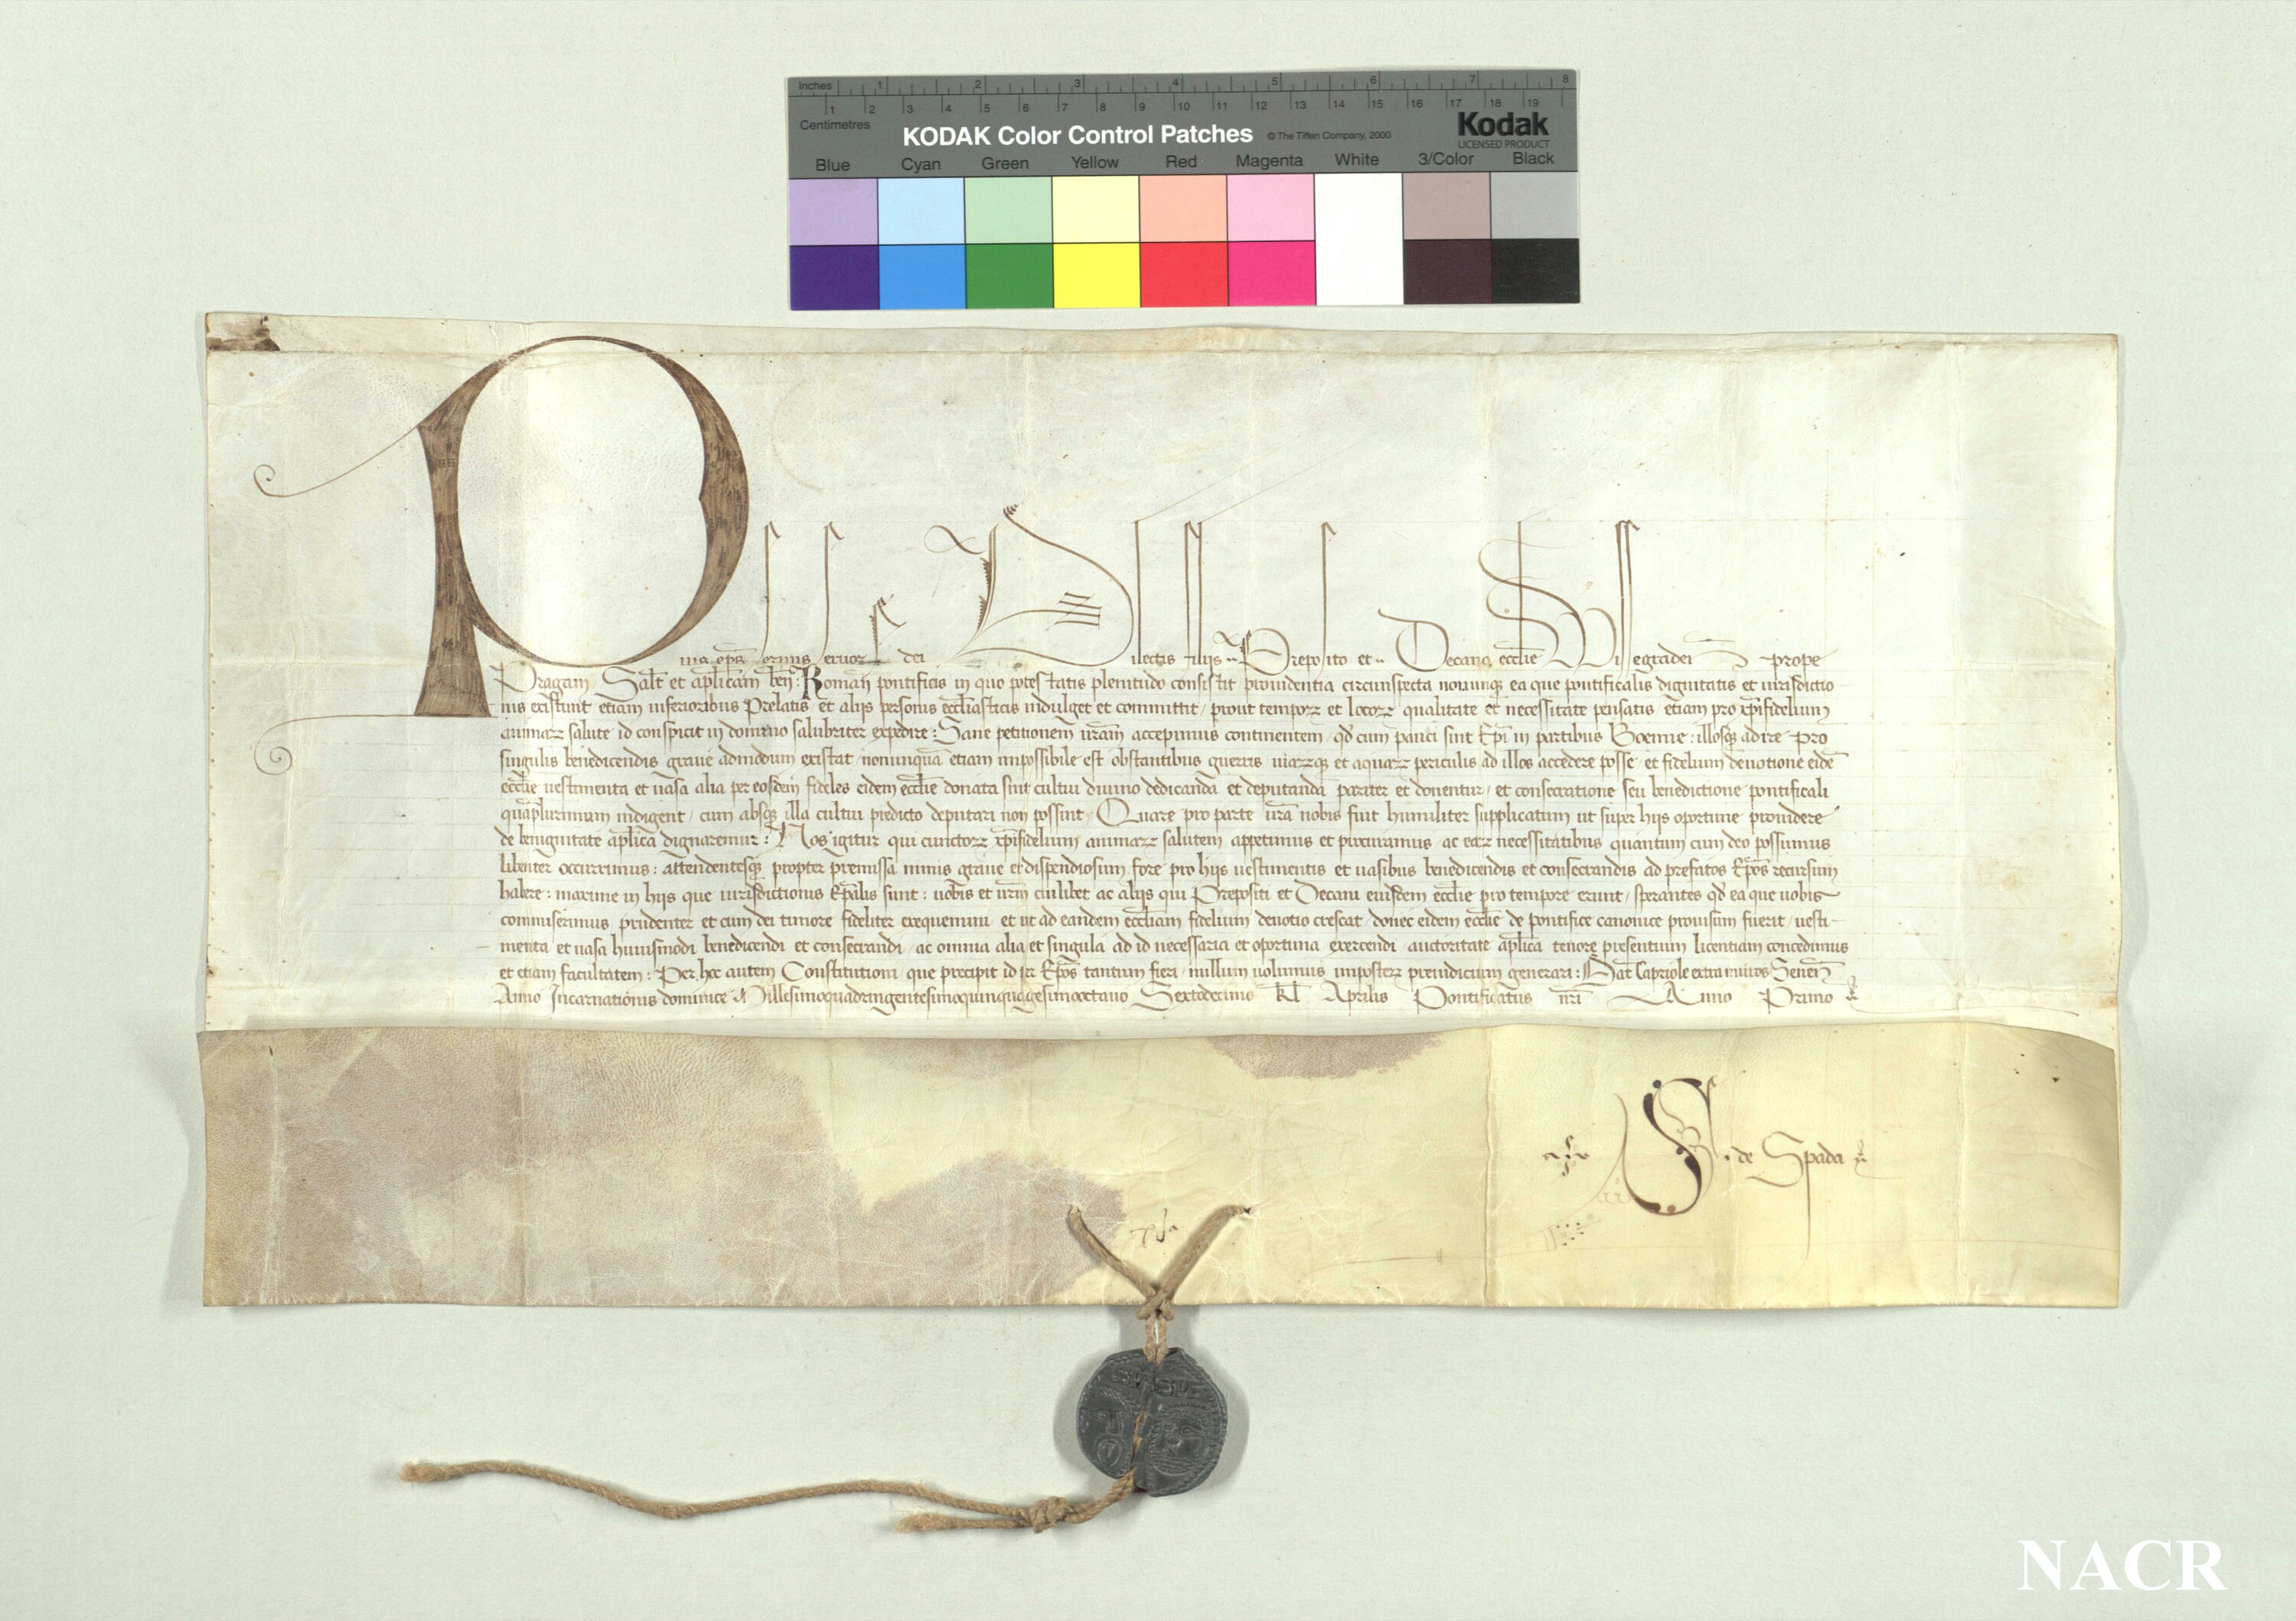 Inches 1 2 3 4 5 6 7 8
1 2 3 4 5 6 7 8 9 10 11 12 13 14 15 16 17 18 19
Centimetres
KODAK Color Control Patches © The Tiffen Company, 2000 Kodak
LICENSED PRODUCT
Blue Cyan Green Yellow Red Magenta White 3/Color Black
Pius ep̄s Seruus seruor dei Dilectis filijs ·· Preposito et ·· Decano ecclīe Wissegraden̄ prope
Pragam Salt̄ et ap̄licam ben̄: Romani pontificis in quo potestatis plenitudo consistit prouidentia circunspecta nonunqꝫ ea que pontificalis dignitatis et iurisdictio
nis existunt etiam inferioribus Prelatis et alijs personis eccliasticis indulget et committit, prout temporꝝ et locorꝝ qualitate et necessitate pensatis, etiam pro xp̄ifidelium
animarꝝ salute id conspicit in domino salubriter expedire: Sane petitionem ur̄am accepimus continentem, qd̄ cum pauci sint Ep̄i in partibus Boemie: illosqꝫ adire pro
singulis benedicendis graue admodum existat, nonunquā etiam impossibile est obstantibus guerris uiarꝝqꝫ et aquarꝝ periculis ad illos accedere posse, et fidelium deuotione eidē
ecclīe uestimenta et uasa alia per eosdem fideles eidem ecclīe donata sint cultui diuino dedicanda et deputanda pariter et donentur, et consecratione seu benedictione pontificali
quāplurimum indigent, cum absqꝫ illa cultui predicto deputari non possint, Quare pro parte ur̄a nobis fuit humiliter supplicatum ut super hijs oportune prouidere
de benignitate ap̄lica dignaremur: Nos igitur qui cunctorꝝ xp̄ifidelium animarꝝ salutem appetimus et procuramus, ac earꝝ necessitatibus quantum cum deo possumus
libenter occurrimus: attendentesqꝫ propter premissa nimis graue et dispendiosum fore pro hijs uestimentis et uasibus benedicendis et consecrandis ad prefatos Ep̄os recursum
habere: maxime in hijs que iurisdictionis Ep̄alis sunt: uobis et ur̄m cuilibet ac alijs qui Prepositi et Decani eiusdem ecclīe pro tempore erunt, sperantes qd̄ ea que uobis
commiserimus prudenter et cum dei timore fideliter exequemini et ut ad eandem ecclīam fidelium deuotio crescat, donec eidem ecclīe de pontifice canonice prouisum fuerit, uesti-
menta et uasa huiusmodi benedicendi et consecrandi, ac omnia alia et singula ad id necessaria et oportuna exercendi auctoritate ap̄lica tenore presentium licentiam concedimus
et etiam facultatem: Per hoc autem Constitutioni que precipit id per Ep̄os tantum fieri, nullum uolumus imposterꝝ preiudicium generari: Dat̄ Capriole extra muros Senen̄
Anno Incarnationis dominice Millesimoquadringentesimoquinquagesimooctauo Sextodecimo kl̄ Aprilis Pontificatus nr̄i Anno Primo
de Spada
SPA SPE
NACR